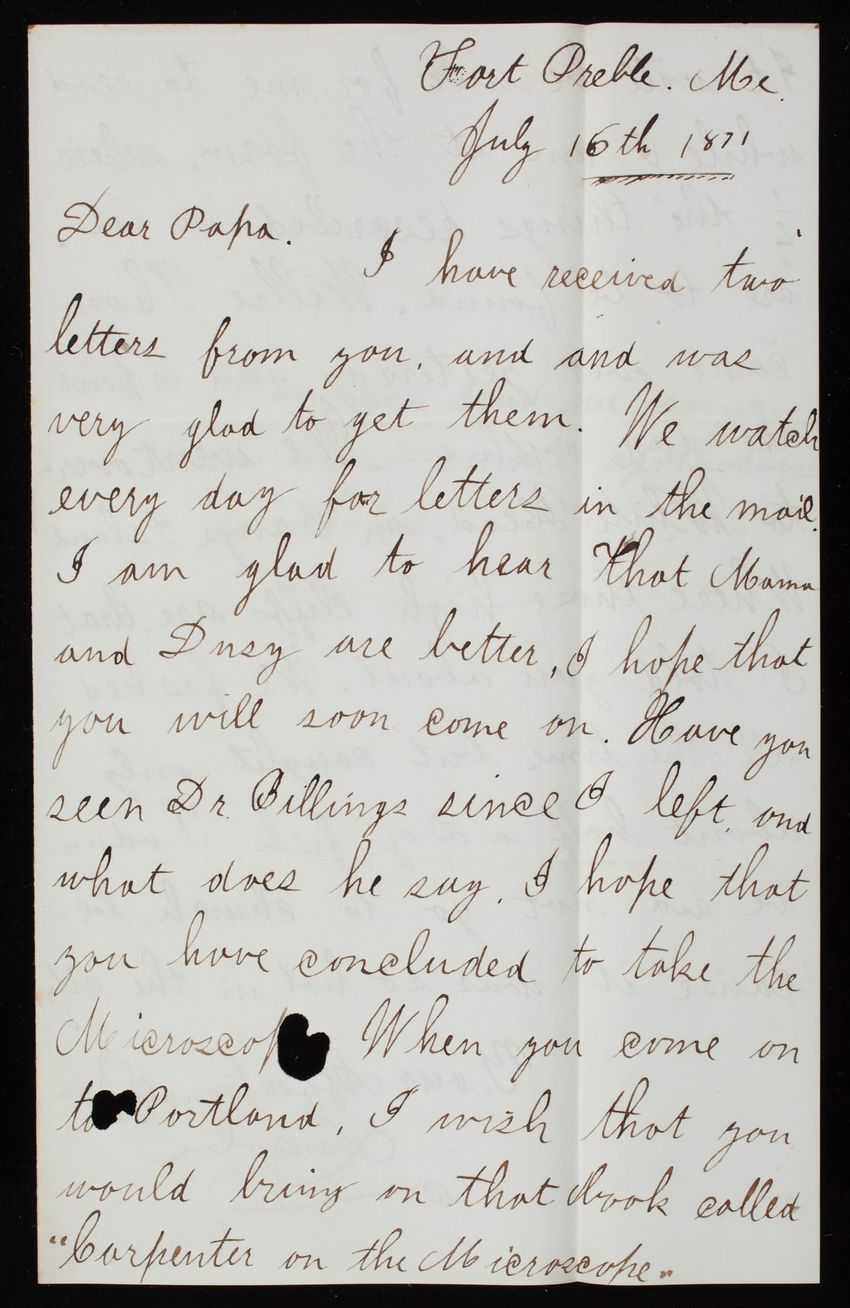 Fort Preble. Me.
July 16th 1871
Dear Papa.
I have received two
letters from you, and and was
very glad to get them. We watch
every day for letters in the mail.
I am glad to hear that Mama
and Dusy are better, I hope that
you will soon come on. Have you
seen Dr. Billings since I left, and
what does he say. I hope that
you have concluded to take the
Microscop When you come on
to Portland, I wish that you
would bring on that book called
"Carpenter on the Microscope."